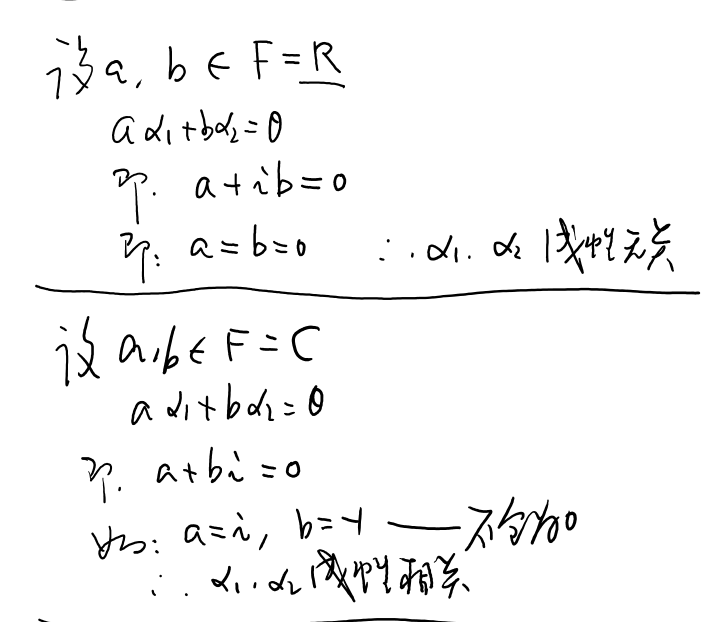 设a, b ∈ F=R
aα₁+bα₂=θ
即. a+ib=0
即: a=b=0 ∴α₁. α₂ 线性无关
设a,b∈F=C
aα₁+bα₂=θ
即. a+bi=0
如: a=i, b=-1 ——不全为0
∴ α₁.α₂线性相关